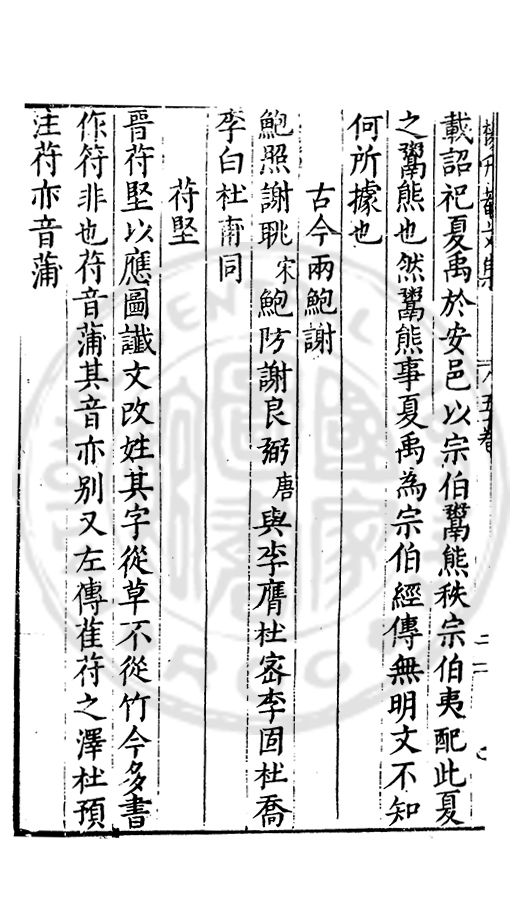 載詔祀夏禹於安邑以宗伯鬻熊秩宗伯夷配此夏
之鬻熊也然鬻熊事夏禹為宗伯經傳無明文不知
何所據也
古今兩鮑謝
鮑照謝朓宋鮑防謝良弼唐與李膺杜密李固杜喬
李白杜甫同
苻堅
晉苻堅以應圖讖文改姓其字從草不從竹今多書
作符非也苻音蒲其音亦别又左傳萑苻之澤杜預
注苻亦音蒲